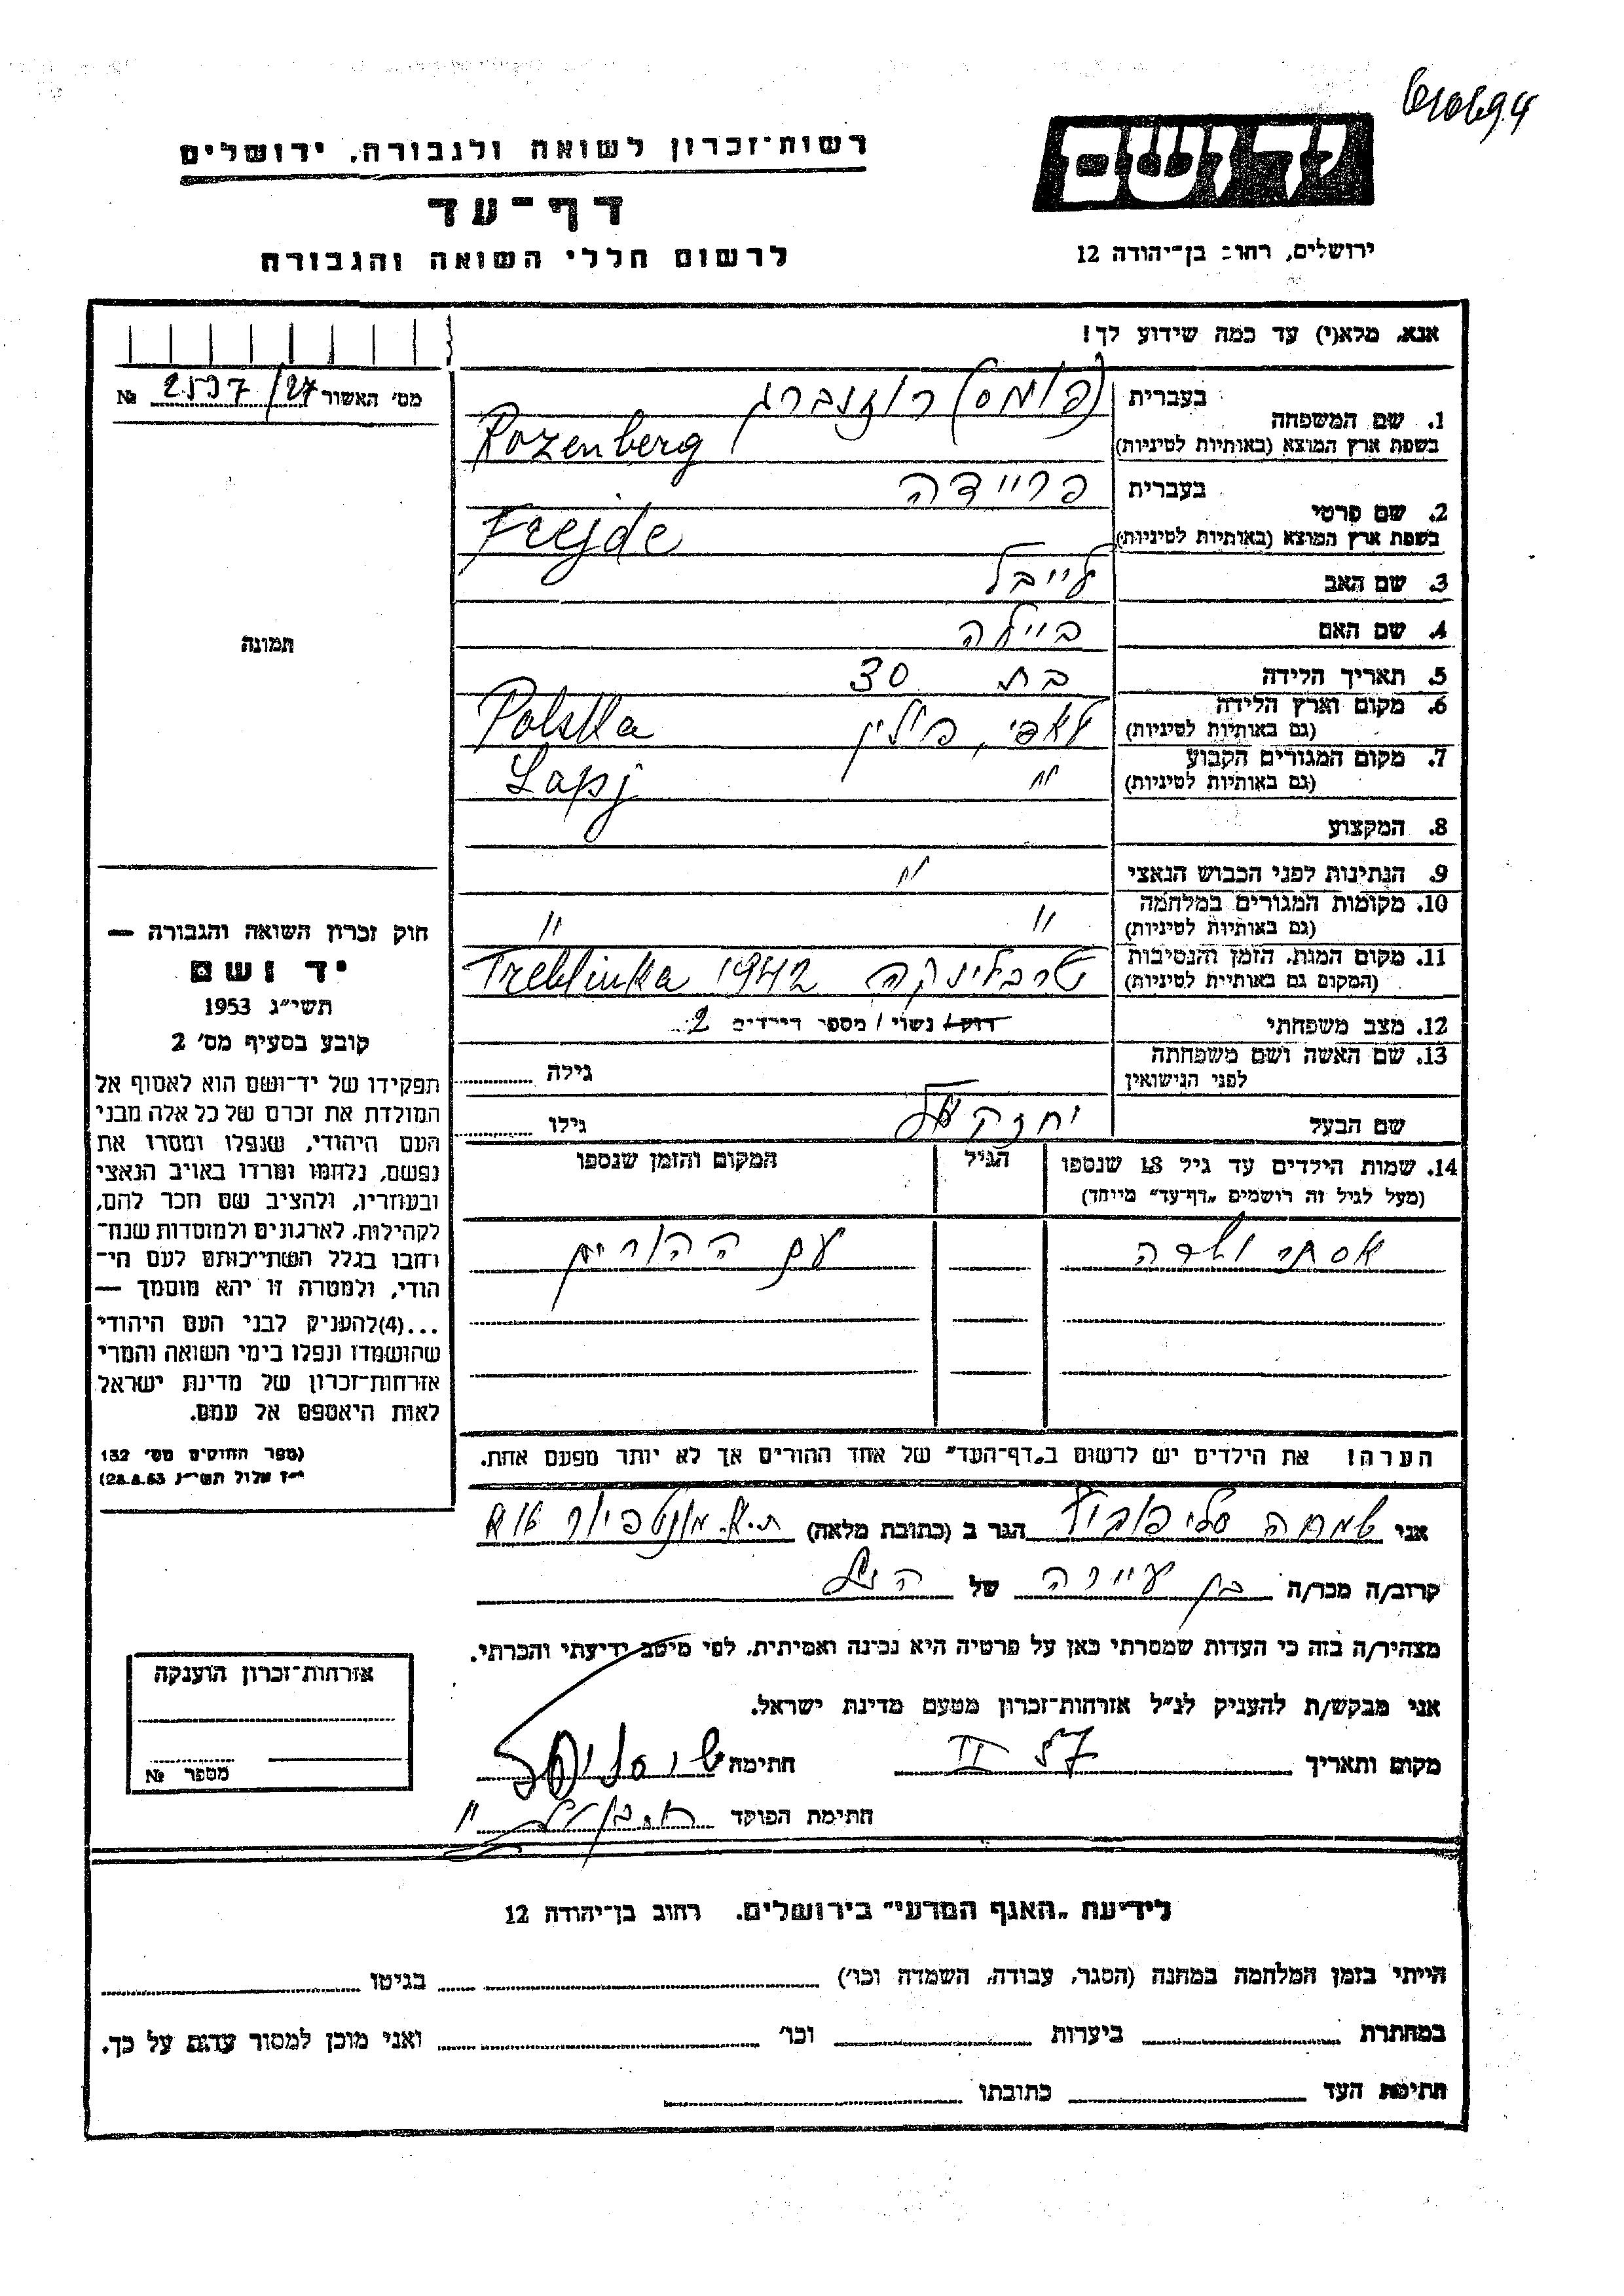 רשות־זכרון לשואה ולגבורה, ירושלים
דף־עד
לרשום חללי השואה והגבורה
יד ושם
ירושלים, רחוב בן־יהודה 12
אנא, מלא(י) עד כמה שידוע לך!
מס' האשור 2537/27 №
1. שם המשפחה בעברית (פומס) רוזנברג
בשפת ארץ המוצא (באותיות לטיניות) Rozenberg
2. שם פרטי בעברית פריידה
בשפת ארץ המוצא (באותיות לטיניות) Frejde
3. שם האב לייבל
4. שם האם ביילה
5. תאריך הלידה בת 30
6. מקום וארץ הלידה לאפי, פולין Polska
(גם באותיות לטיניות)
7. מקום המגורים הקבוע " Lapj
(גם באותיות לטיניות)
8. המקצוע
9. הנתינות לפני הכבוש הנאצי "
10. מקומות המגורים במלחמה " "
(גם באותיות לטיניות)
11. מקום המות, הזמן והנסיבות טרבלינקה Treblinka 1942
(המקום גם באותיות לטיניות)
12. מצב משפחתי רווק / נשוי / מספר הילדים 2
13. שם האשה ושם משפחתה גילה
לפני הנישואין
שם הבעל יחזקאל גילו
14. שמות הילדים עד גיל 18 שנספו הגיל המקום והזמן שנספו
(מעל לגיל זה רושמים „דף־עד" מיוחד)
אסתר ולדה עם ההורים
הערה! את הילדים יש לרשום ב„דף־העד" של אחד ההורים אך לא יותר מפעם אחת.
תמונה
חוק זכרון השואה והגבורה —
יד ושם
תשי"ג 1953
קובע בסעיף מס' 2
תפקידו של יד־ושם הוא לאסוף אל
המולדת את זכרם של כל אלה מבני
העם היהודי, שנפלו ומסרו את
נפשם, נלחמו ומרדו באויב הנאצי
ובעוזריו, ולהציב שם וזכר להם,
לקהילות, לארגונים ולמוסדות שנח־
רבו בגלל השתייכותם לעם הי־
הודי, ולמטרה זו יהא מוסמך —
...(4) להעניק לבני העם היהודי
שהושמדו ונפלו בימי השואה והמרי
אזרחות־זכרון של מדינת ישראל
לאות היאספם אל עמם.
(ספר החוקים מס' 132
י"ז אלול תשי"ג 28.8.53)
אני שמחה סליפוביץ הגר ב (כתובת מלאה) ת.א. מונטפיורי
קרוב/ה מכר/ה בן עיירה של הנ"ל
מצהיר/ה בזה כי העדות שמסרתי כאן על פרטיה היא נכונה ואמיתית, לפי מיטב ידיעתי והכרתי.
אני מבקש/ת להעניק לנ"ל אזרחות־זכרון מטעם מדינת ישראל.
מקום ותאריך 57 II חתימה
חתימת הפוקד
אזרחות־זכרון הוענקה
מספר №
לידיעת „האגף המדעי" בירושלים, רחוב בן־יהודה 12
הייתי בזמן המלחמה במחנה (הסגר, עבודה, השמדה וכו') בגיטו
במחתרת ביערות וכו' ואני מוכן למסור עדות על כך.
חתימת העד כתובתו